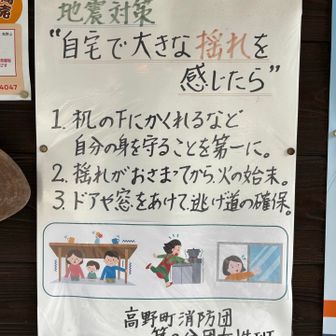 地震対策
“自宅で大きな揺れを
感じたら”
1. 机の下にかくれるなど
自分の身を守ることを第一に。
2. 揺れがおさまってから火の始末。
3. ドアや窓をあけて、逃げ道の確保。
高野町消防団
4047